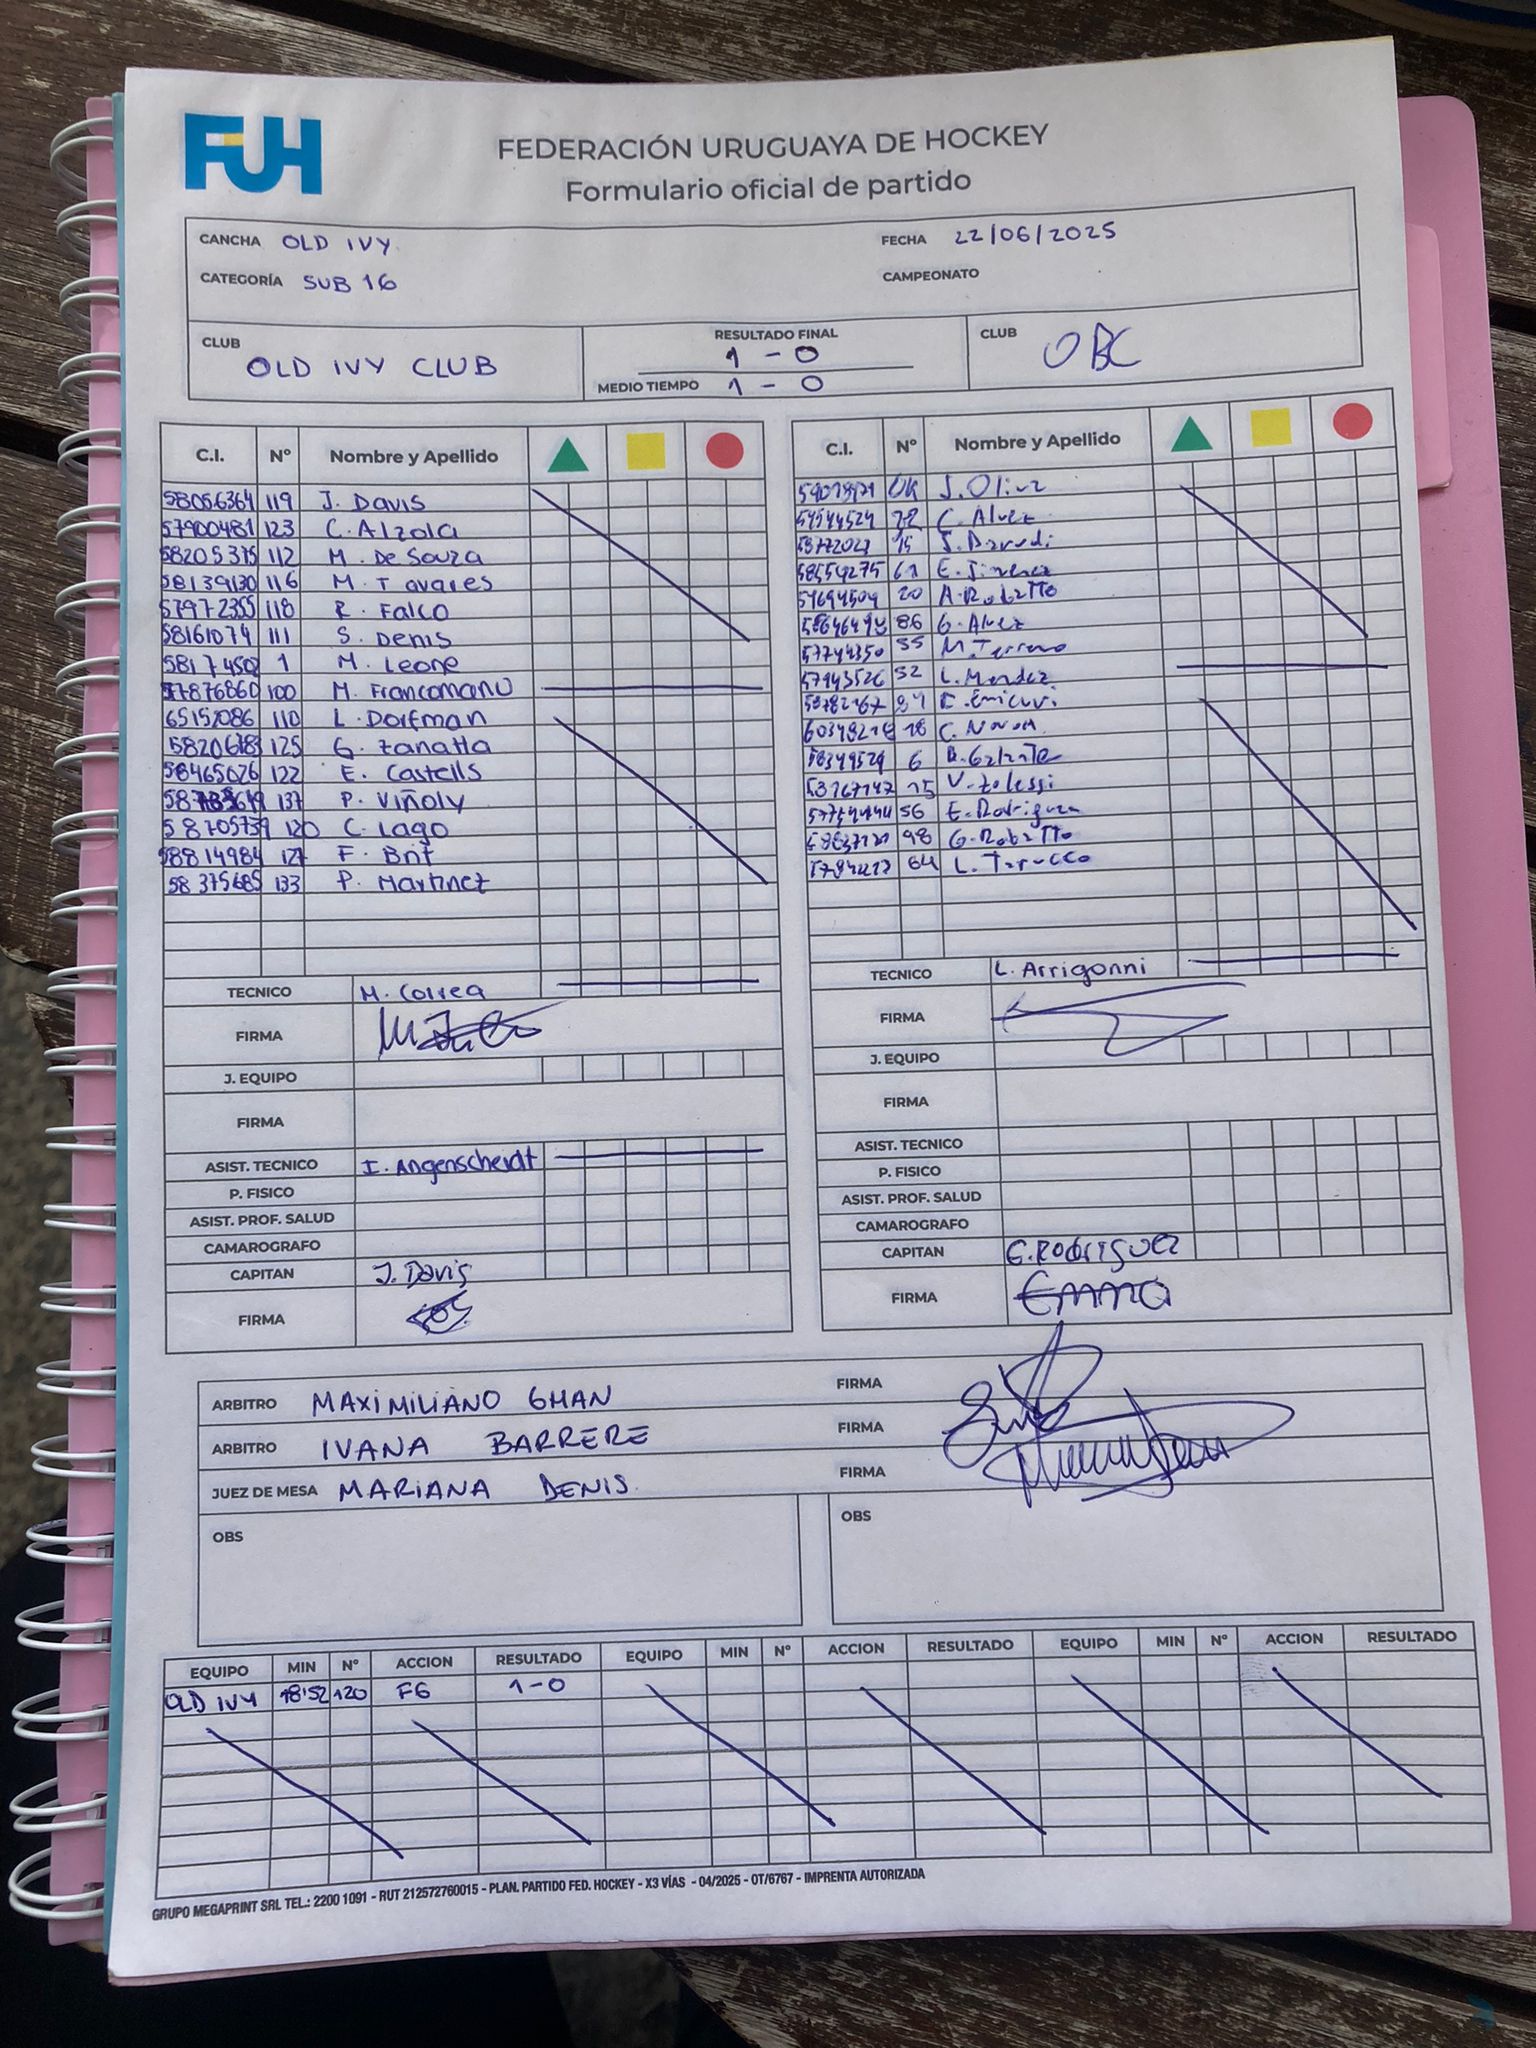 FUH
FEDERACIÓN URUGUAYA DE HOCKEY
Formulario oficial de partido
CANCHA OLD IVY FECHA 22/06/2025
CATEGORÍA SUB 16 CAMPEONATO
CLUB OLD IVY CLUB
RESULTADO FINAL
1 - 0
MEDIO TIEMPO 1 - 0
CLUB OBC
C.I. Nº Nombre y Apellido
58056364 119 J. Davis
57900481 123 C. Alzola
58205375 112 M. De Souza
58139130 116 M. Tavares
57972355 118 R. Falco
58161074 111 S. Denis
58174502 1 M. Leone
57876860 100 M. Francomano
65152086 110 L. Dorfman
125 G. Zanatta
58465026 122 E. Castells
137 P. Viñoly
58705739 120 C. Lago
58814984 127 F. Brit
58375685 133 P. Martinez
TECNICO M. Correa
FIRMA
J. EQUIPO
FIRMA
ASIST. TECNICO I. Angenscheidt
P. FISICO
ASIST. PROF. SALUD
CAMAROGRAFO
CAPITAN J. Davis
FIRMA
C.I. Nº Nombre y Apellido
J. Oliva
C. Alvez
15
E. Jimenez
20 A. Robatto
86 G. Alvez
55 M. Terreno
52 L. Mendez
18 C. Novoa
6
V. Zolessi
56 E. Rodriguez
98 G. Robatto
64
TECNICO L. Arrigonni
FIRMA
J. EQUIPO
FIRMA
ASIST. TECNICO
P. FISICO
ASIST. PROF. SALUD
CAMAROGRAFO
CAPITAN E. Rodriguez
FIRMA Emma
ARBITRO MAXIMILIANO GHAN FIRMA
ARBITRO IVANA BARRERE FIRMA
JUEZ DE MESA MARIANA DENIS FIRMA
OBS OBS
EQUIPO MIN Nº ACCION RESULTADO EQUIPO MIN Nº ACCION RESULTADO EQUIPO MIN Nº ACCION RESULTADO
OLD IVY 18'52 120 FG 1-0
GRUPO MEGAPRINT SRL TEL.: 2200 1091 - RUT 212572760015 - PLAN. PARTIDO FED. HOCKEY - X3 VÍAS - 04/2025 - OT/6767 - IMPRENTA AUTORIZADA